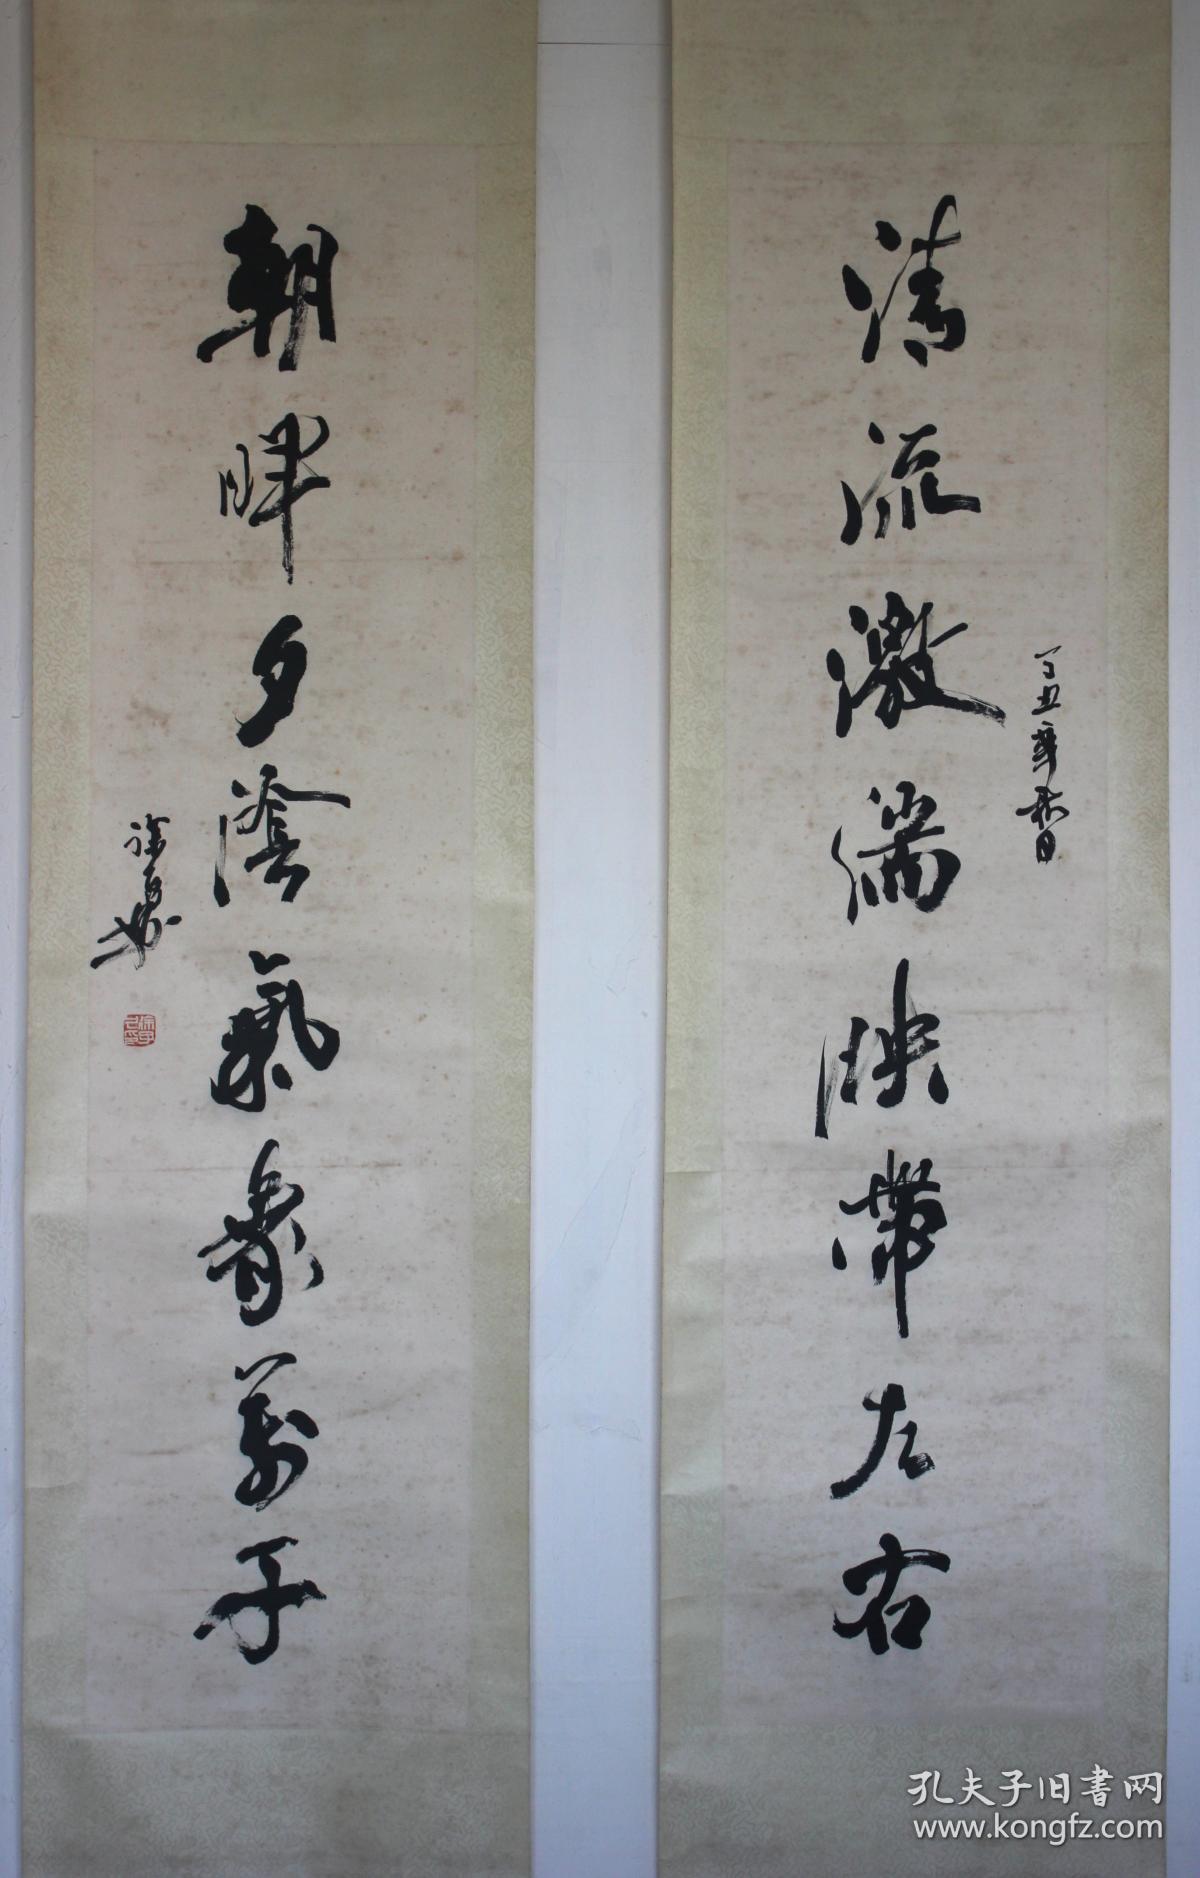 清流激湍映帶左右
丁丑年秋日
朝暉夕陰氣象萬千
徐
孔夫子旧書网
www.kongfz.com